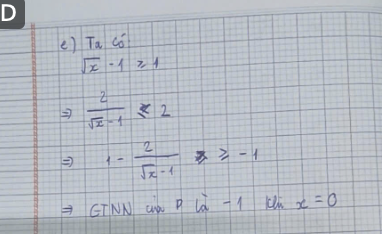 D
e) Ta có:
√x - 1 ≥ 1
⇒ 2/(√x - 1) ≤ 2
⇒ 1 - 2/(√x - 1) ≥ -1
⇒ GTNN của P là -1 khi x = 0